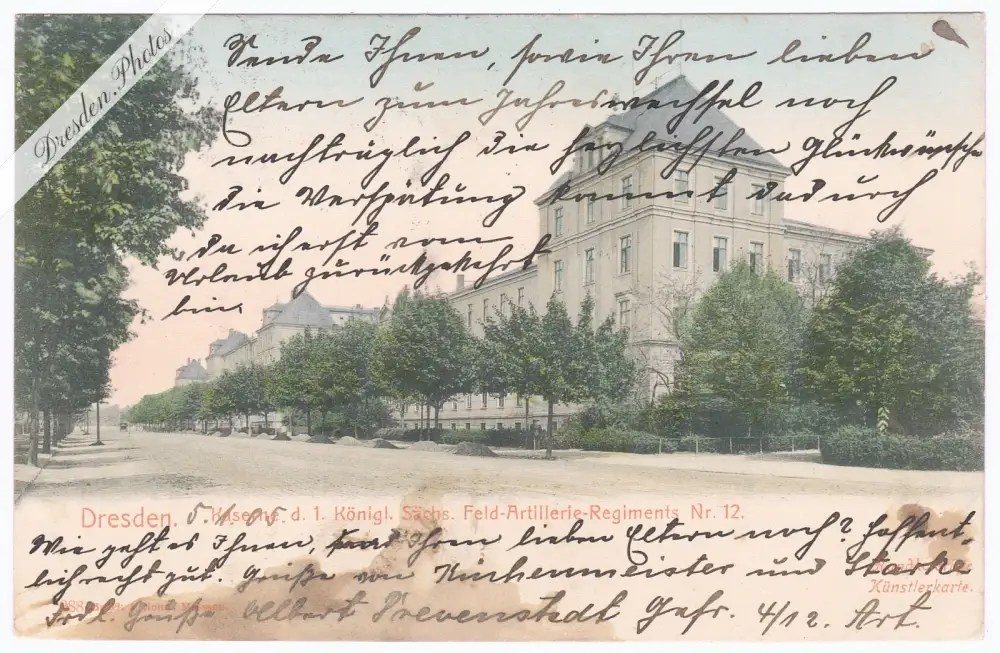 Dresden.Photos
Sende Ihnen, sowie Ihren lieben
Eltern zum Jahreswechsel noch
nachträglich die herzlichsten Glückwünsche
die Verspätung kommt dadurch
da ich erst vom
Urlaub zurückgekehrt
bin.
Dresden. Kaserne d. 1. Königl. Sächs. Feld-Artillerie-Regiments Nr. 12.
5.1.05
Wie geht es Ihnen, Ihren lieben Eltern noch? hoffent-
lich recht gut. Grüße von Kirchenmeister und Starke
Künstlerkarte.
Frdl. Grüße Albert Grevenstedt Gefr. 4/12. Art.